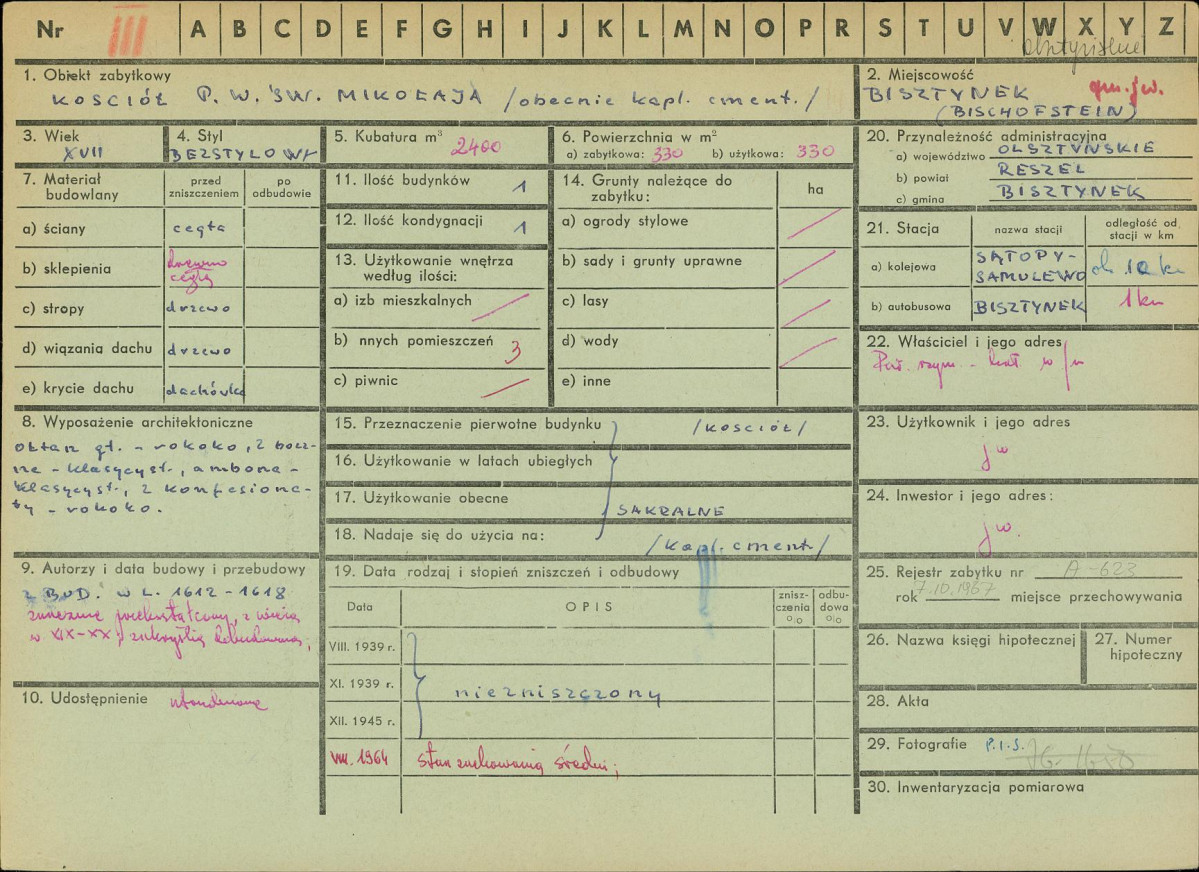 Nr III A B C D E F G H I J K L M N O P R S T U V W X Y Z
olsztyńskie
1. Obiekt zabytkowy
KOSCIÓŁ P.W. ŚW. MIKOŁAJA /obecnie kapl. cment./
2. Miejscowość
BISZTYNEK gm. jw.
(BISCHOFSTEIN)
3. Wiek
XVII
4. Styl
BEZSTYLOWY
5. Kubatura m³ 2400
6. Powierzchnia w m²
a) zabytkowa: 330 b) użytkowa: 330
7. Materiał budowlany
przed zniszczeniem
po odbudowie
a) ściany cegła
b) sklepienia drzewo
cegły
c) stropy drzewo
d) wiązania dachu drzewo
e) krycie dachu dachówka
8. Wyposażenie architektoniczne
OŁTARZ gł. - rokoko, 2 bocz-
ne - klasycyst., ambona -
klasycyst., 2 konfesjona-
ły - rokoko.
9. Autorzy i data budowy i przebudowy
ZBUD. W L. 1612 - 1618
znacznie przekształcony, z wieżą
w XIX-XX, zakrystią dobudowaną,
10. Udostępnienie
11. Ilość budynków 1
12. Ilość kondygnacji 1
13. Użytkowanie wnętrza
według ilości:
a) izb mieszkalnych
b) nnych pomieszczeń 3
c) piwnic
14. Grunty należące do
zabytku:
ha
a) ogrody stylowe
b) sady i grunty uprawne
c) lasy
d) wody
e) inne
15. Przeznaczenie pierwotne budynku /KOSCIÓŁ/
16. Użytkowanie w latach ubiegłych
17. Użytkowanie obecne
SAKRALNE
18. Nadaje się do użycia na:
/kapl. cment/
19. Data rodzaj i stopień zniszczeń i odbudowy
Data
OPIS
znisz-
czenia
%
odbu-
dowa
%
VIII. 1939 r.
XI. 1939 r. niezniszczony
XII. 1945 r.
VIII. 1964 stan zachowania średni;
20. Przynależność administracyjna
a) województwo OLSZTYŃSKIE
b) powiat RESZEL
c) gmina BISZTYNEK
21. Stacja
nazwa stacji
odległość od
stacji w km
a) kolejowa SĄTOPY-
SAMULEWO
ok. 10 km
b) autobusowa BISZTYNEK 1 km
22. Właściciel i jego adres
Par. rzym. - kat. w/m
23. Użytkownik i jego adres
jw
24. Inwestor i jego adres:
jw.
25. Rejestr zabytku nr A-623
rok 7.10.1967 miejsce przechowywania
26. Nazwa księgi hipotecznej
27. Numer
hipoteczny
28. Akta
29. Fotografie P.I.S.
30. Inwentaryzacja pomiarowa